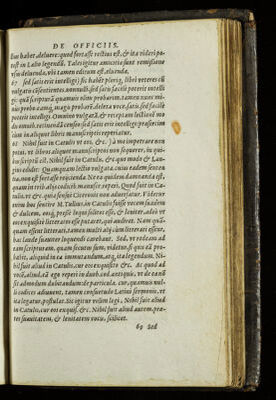 DE OFFICIIS.
bus habet diluere: quod fort asse rectius est. & ita uideri po-
test in Lalio legendū. Tales igitur amicitia sunt remissione
usu eluenda, ubi tamen editum est eluenda.
67 sed satis erit intelligi) sic habēt pleriq; libri ueteres cū
uulgatis cōsentientes. nonnulli. sed satis facilè poterit intelli
gi: quā scripturā quamuis olim probarim. tamen nunc mi-
nus probo. eamq; magis probarē, deleta uoce, satis: sed facilè
poterit intelligi. Omnino uulgatā, & receptam lectionē mo
do omnib. retinendā censeo: sed satis erit intelligi: præsertim
cùm in aliquot libris manuscriptis reperiatur.
68 Nihil fuit in Catulis ut eos, &c. ) à me imperare non
potui, ut libros omnes manuscriptos non sequerer, in qui-
bus scriptū est. Nihil fuit in Catulis, &c. quo modo & Lan-
gius edidit. Quamquam lectio uulgata, cuius eadem senten
tia, non est fort asse reiicienda. Nec ea quidem damnanda est,
quam in trib. alijs codicib. manuscr. reperi. Quid fuit in Ca-
tulis. ut &c. quia sensus Ciceronis non aduersatur. Videtur
enim hoc sentire M. Tullius, in Catulis fuisse uocem suauem
& dulcem. eosq; presse loqui solitos esse, & leuiter, adeò ut
eos exquisito iudicio uti litterarum esse putaret, qui audiret. Nam quā-
quam essent litterati, tamen multi alij cùm litterati essent,
hac laude suauiter loquendi carebant. Sed, ut redeam ad
eam scripturam, quam secutus sum, uidetur, si quis eā pro-
babit, aliquid in ea immutandum, atq; ita legendum. Ni-
hil fuit aliud in Catulis, cur eos exquisito &c. At quod ad
uocē, aliud, eā ego reperi in duob. cod. antiquis. ut de ea nō
sit admodum dubitandum: de particula, cur, quamuis nul-
li codices adiuuent, tamen consuetudo Latini sermonis, ut
ita legatur, postulat. Sic igitur uelim legi. Nihil fuit aliud
in Catulis, cur eos exquis. &c. Nihil fuit aliud autem præ-
ter suauitatem, & lenitatem uocis, scilicet.
69 Sed